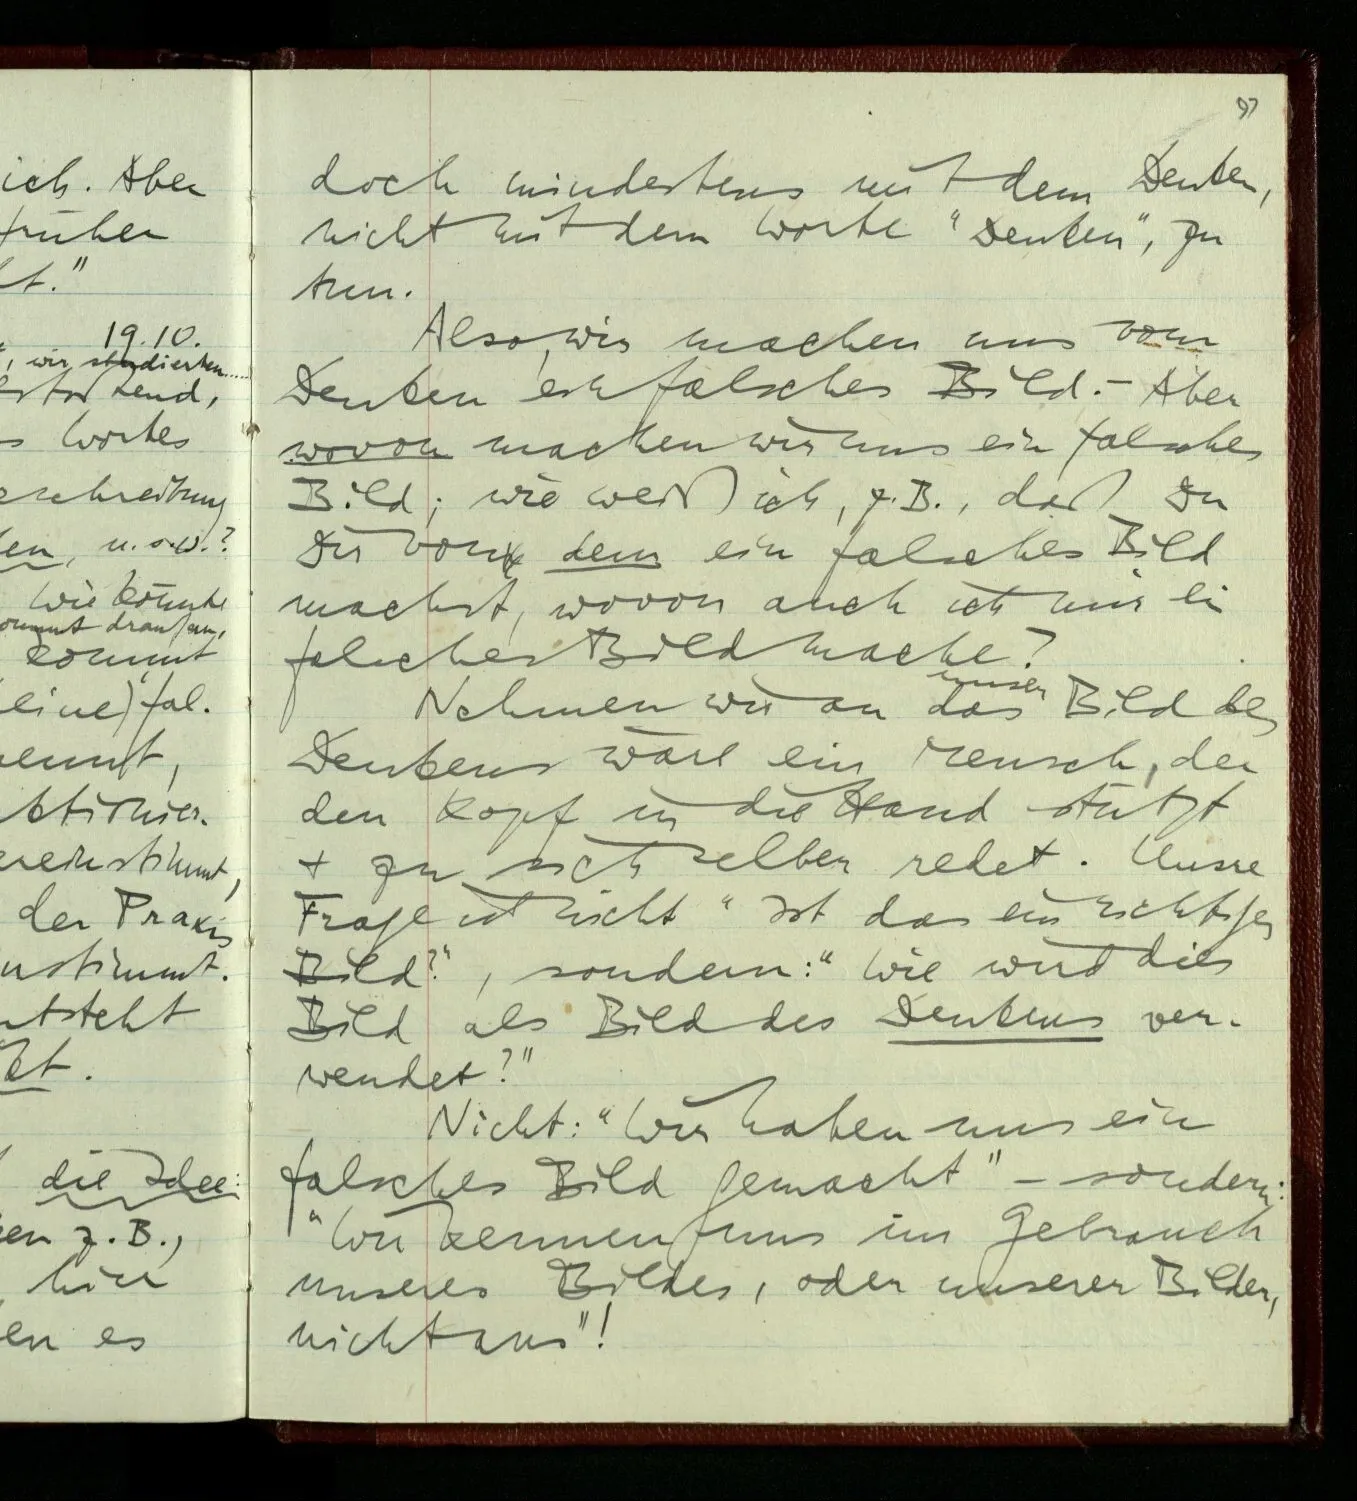 ich. Aber
früher
t."
19.10.
, wir studierten.....
end,
s Wortes
eschreibung
en, u.s.w.?
Wie könnte
kommt drauf an,
kommt
(eine) fal.
nennt,
ktionier.
ereinstimmt,
der Praxis
nstimmt.
ntsteht
kt.
die Idee:
en z.B.,
hier
en es
97
doch mindestens mit dem Denken,
nicht mit dem Worte "Denken", zu
tun.
Also, wir machen uns vom
Denken ein falsches Bild. – Aber
wovon machen wir uns ein falsches
Bild; wie weiß ich, z.B., daß Du
Dir von dem ein falsches Bild
machst, wovon auch ich mir ein
falsches Bild mache?
unser
Nehmen wir an das Bild des
Denkens wäre ein Mensch, der
den Kopf in die Hand stützt
+ zu sich selber redet. Unsre
Frage ist nicht "Ist das ein richtiges
Bild?", sondern: "Wie wird dies
Bild als Bild des Denkens ver-
wendet?"
Nicht: "Wir haben uns ein
falsches Bild gemacht" – sondern:
"Wir kennen uns im Gebrauch
unseres Bildes, oder unserer Bilder,
nicht aus"!